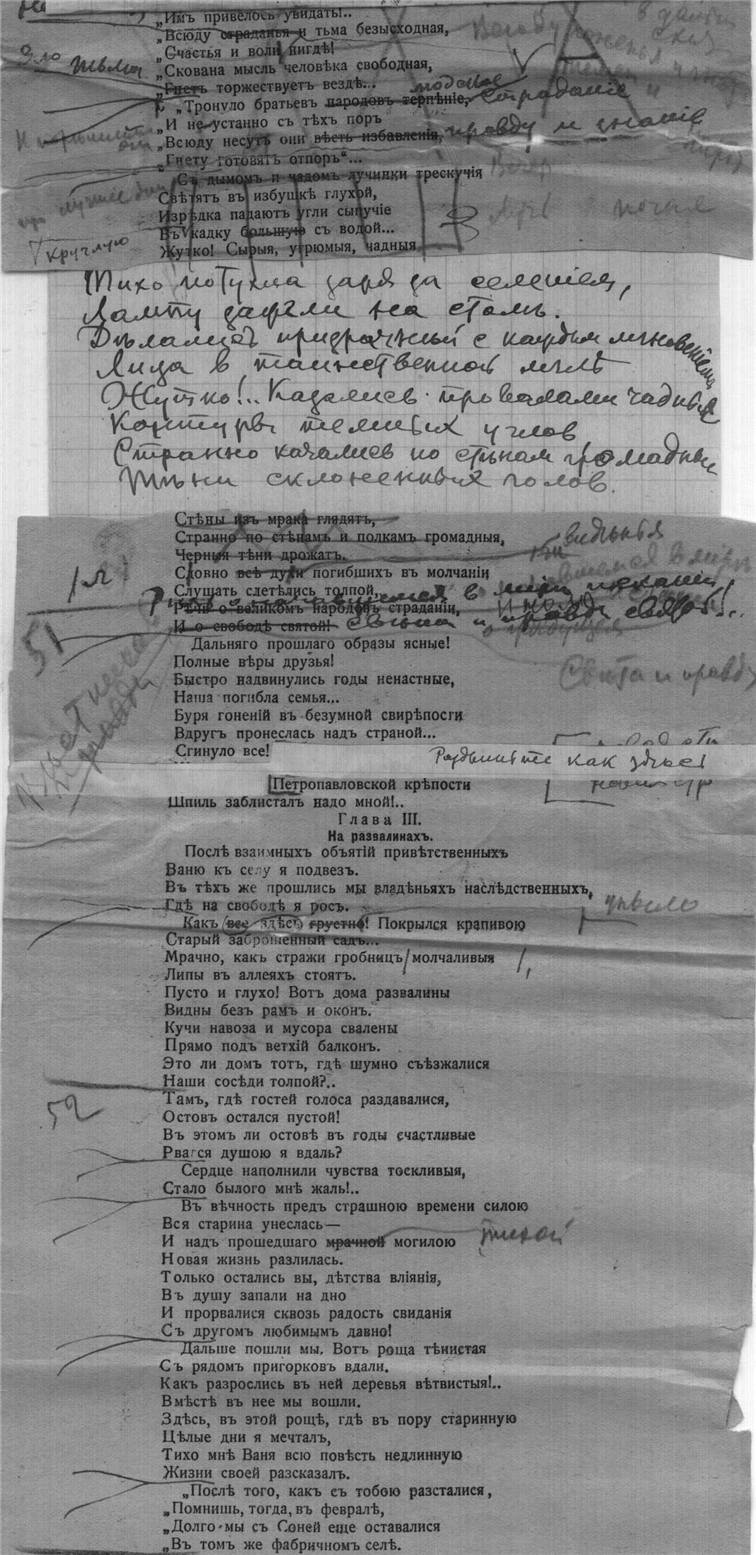 „Имъ привелось увидать!..
„Всюду страданья и тьма безысходная,
„Счастья и воли нигдѣ!
„Скована мысль человѣка свободная,
„Гнетъ торжествуетъ вездѣ..
Зло тьма
„Тронуло братьевъ народовъ терпѣніе, людское страданіе
„И не устанно съ тѣхъ поръ
„Всюду несутъ они вѣсть избавленія, правду и знаніе
„Гнету готовятъ отпоръ“...
Съ дымомъ и чадомъ лучинки трескучія
Свѣтятъ въ избушкѣ глухой,
Изрѣдка падаютъ угли сыпучіе
Въ кадку большую съ водой...
круглую
Жутко! Сырыя, угрюмыя, чадныя
Тихо потухла заря за селеніем,
Лампу зажгли на столѣ.
Дѣлались призрачнѣй с каждым мгновеніем
Лица в таинственной мглѣ
Жутко!.. Казались провалами чадными
Контуры темных углов
Странно качались по стѣнам громадныя
Тѣни склоненных голов.
Стѣны изъ мрака глядятъ,
Странно по стѣнамъ и полкамъ громадныя,
Черныя тѣни дрожатъ.
видѣнья
Словно всѣ души погибшихъ въ молчаніи
Слушать слетѣлись толпой
Рѣчи о великомъ народѣ страданіи,
в мірѣ исканіи
И о свободѣ святой!
свѣта и правды святой...
51
Дальняго прошлаго образы ясные!
Полные вѣры друзья!
Быстро надвинулись годы ненастные,
Наша погибла семья...
Буря гоненій въ безумной свирѣпости
Вдругъ пронеслась надъ страной...
Сгинуло все!
Свѣта и правды
Раздвиньте как здѣсь
Петропавловской крѣпости
Шпиль заблисталъ надо мной!..
Глава III.
На развалинахъ.
Послѣ взаимныхъ объятій привѣтственныхъ
Ваню къ селу я подвезъ.
Въ тѣхъ же прошлись мы владѣньяхъ наслѣдственныхъ,
Гдѣ на свободѣ я росъ.
Какъ все здѣсь грустно! Покрылся крапивою
уныло
Старый заброшенный садъ...
Мрачно, какъ стражи гробницъ молчаливыя
Липы въ аллеяхъ стоятъ.
Пусто и глухо! Вотъ дома развалины
Видны безъ рамъ и оконъ.
Кучи навоза и мусора свалены
Прямо подъ ветхій балконъ.
Это ли домъ тотъ, гдѣ шумно съѣзжалися
Наши сосѣди толпой?..
52
Тамъ, гдѣ гостей голоса раздавалися,
Остовъ остался пустой!
Въ этомъ ли остовѣ въ годы счастливые
Рвался душою я вдаль?
Сердце наполнили чувства тоскливыя,
Стало былого мнѣ жаль!..
Въ вѣчность предъ страшною времени силою
Вся старина унеслась—
И надъ прошедшаго мрачной могилою
тихой
Новая жизнь разлилась.
Только остались вы, дѣтства вліянія,
Въ душу запали на дно
И прорвалися сквозь радость свиданія
Съ другомъ любимымъ давно!
Дальше пошли мы. Вотъ роща тѣнистая
Съ рядомъ пригорковъ вдали.
Какъ разрослись въ ней деревья вѣтвистыя!..
Вмѣстѣ въ нее мы вошли.
Здѣсь, въ этой рощѣ, гдѣ въ пору старинную
Цѣлые дни я мечталъ,
Тихо мнѣ Ваня всю повѣсть недлинную
Жизни своей разсказалъ.
„Послѣ того, какъ съ тобою разсталися,
„Помнишь, тогда, въ февралѣ,
„Долго мы съ Соней еще оставалися
„Въ томъ же фабричномъ селѣ.